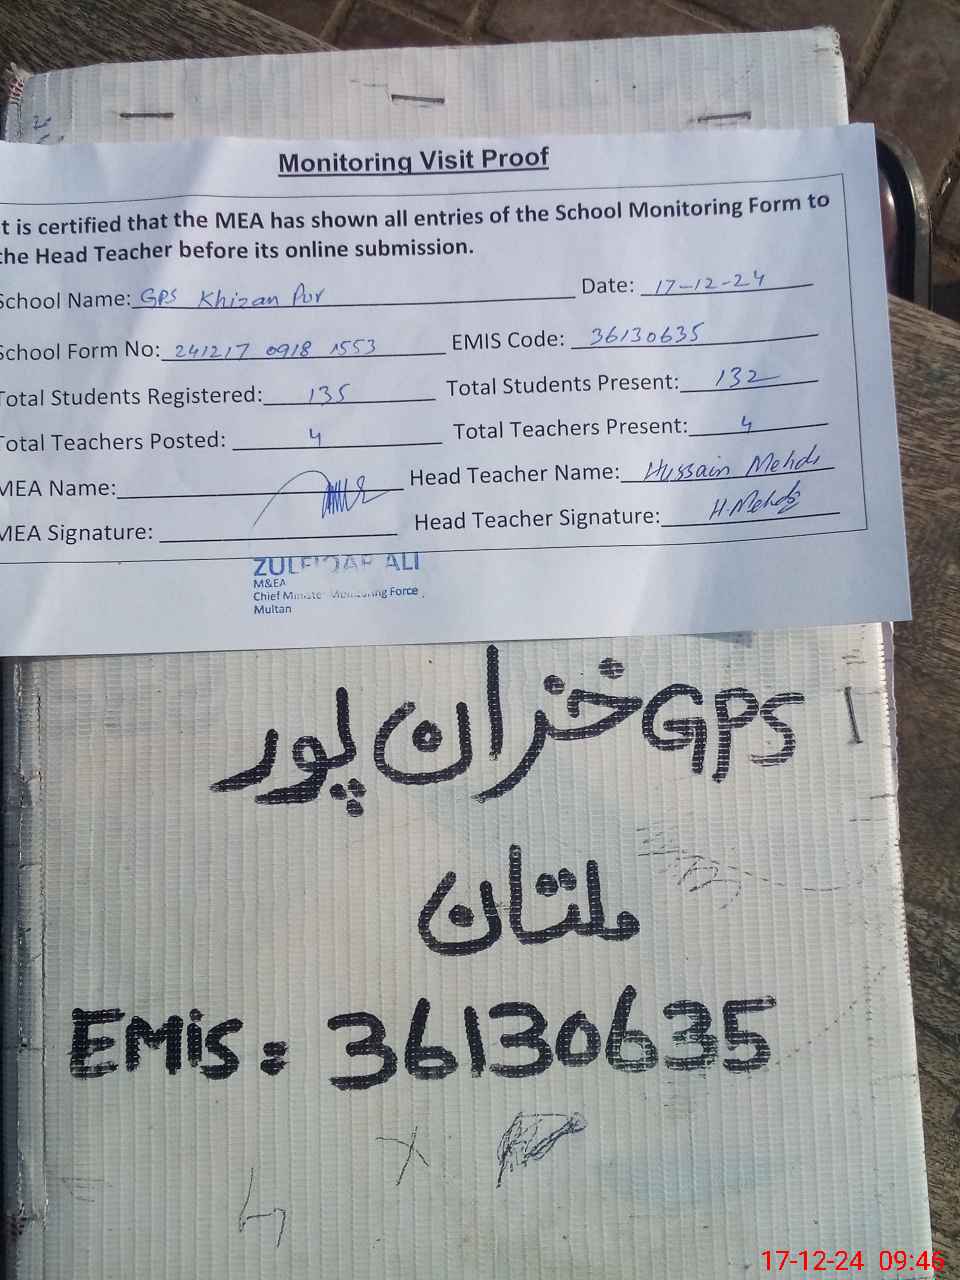 Monitoring Visit Proof
t is certified that the MEA has shown all entries of the School Monitoring Form to
the Head Teacher before its online submission.
School Name: GPS Khizan Pur Date: 17-12-24
School Form No: 241217 0918 1553 EMIS Code: 36130635
Total Students Registered: 135 Total Students Present: 132
Total Teachers Posted: 4 Total Teachers Present: 4
MEA Name: Head Teacher Name: Hussain Mehdi
MEA Signature: Head Teacher Signature: H.Mehdi
ZULFIQAR ALI
M&EA
Chief Minister Monitoring Force
Multan
GPS خزان پور
ملتان
EMiS = 36130635
17-12-24 09:46